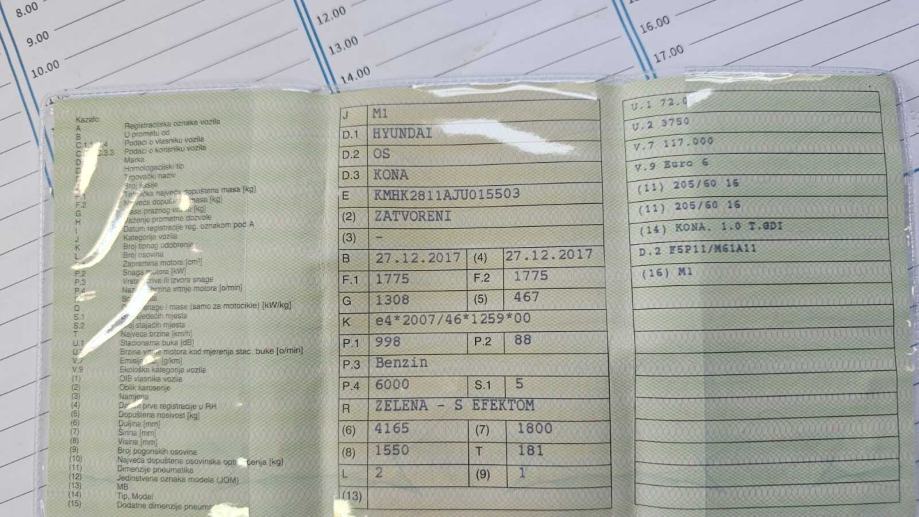 8.00
9.00
10.00
12.00
13.00
14.00
16.00
17.00
Kazalo:
A Registracijska oznaka vozila
B U prometu od
Podaci o vlasniku vozila
Podaci o korisniku vozila
Marka
Homologacijski tip
Trgovački naziv
Broj šasije
najveća dopuštena masa [kg]
F.2 masa [kg]
G
H važenje prometne dozvole
I Datum registracije reg. oznakom pod A
J Kategorija vozila
K Broj tipnog odobrenja
L Broj osovina
Zapremina motora [cm³]
P.2 Snaga motora [kW]
P.3 Vrsta goriva ili izvora snage
P.4 brzina vrtnje motora [o/min]
Q snage i mase (samo za motocikle) [kW/kg]
S.1 sjedećih mjesta
S.2 stajaćih mjesta
T Najveća brzina [km/h]
U.1 Stacionarna buka [dB]
Brzina vrtnje motora kod mjerenja stac. buke [o/min]
V.7 [g/km]
V.9 Ekološka kategorija vozila
(1) OIB vlasnika vozila
(2) Oblik karoserije
(3) Namjena
(4) prve registracije u RH
(5) Dopuštena nosivost [kg]
(6) Duljina [mm]
(7) Širina [mm]
(8) Visina [mm]
(9) Broj pogonskih osovina
(10) Najveća dopuštena osovinska [kg]
(11) Dimenzije pneumatika
(12) Jedinstvena oznaka modela (JOM)
(13) MB
(14) Tip, Model
(15) Dodatne dimenzije
J M1
D.1 HYUNDAI
D.2 OS
D.3 KONA
E KMHK2811AJU015503
(2) ZATVORENI
(3) -
B 27.12.2017 (4) 27.12.2017
F.1 1775 F.2 1775
G 1308 (5) 467
K e4*2007/46*1259*00
P.1 998 P.2 88
P.3 Benzin
P.4 6000 S.1 5
R ZELENA - S EFEKTOM
(6) 4165 (7) 1800
(8) 1550 T 181
L 2 (9) 1
(13)
U.1 72.0
U.2 3750
V.7 117.000
V.9 Euro 6
(11) 205/60 16
(11) 205/60 16
(14) KONA. 1.0 T.GDI
D.2 F5P11/M61A11
(16) M1